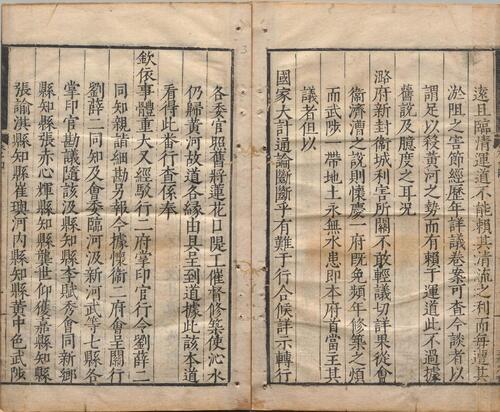 逵且臨清運道不能賴其清流之利而每遭其
淤阻之害節經歷年詳議卷案可查今談者以
謂足以殺黃河之勢而有賴于運道此不過據
舊說及臆度之耳況
潞府新封衛城利害所關不敢輕議切詳果從會
衛濟漕之說則懷慶一府既免頻年修築之煩
而武陟一帶地土永無水患即本府首當主其
議者但以
國家大計通論斷斷乎有難于行合候詳示轉行
各委官照舊將蓮花口隄工催督修築使沁水
仍歸黃河故道各緣由具呈到道據此該本道
看得此番行查係奉
欽依事體重大又經駁行二府掌印官行令劉薛二
同知親詣細勘另報今據懷衛二府會呈關行
劉薛二同知及會委臨河汲新河武等七縣各
掌印官勘議隨該汲縣知縣李賦秀會同新鄉
縣知縣張赤心輝縣知縣龔世仰獲嘉縣知縣
張諭淇縣知縣崔璵河內縣知縣黃中色武陟
3